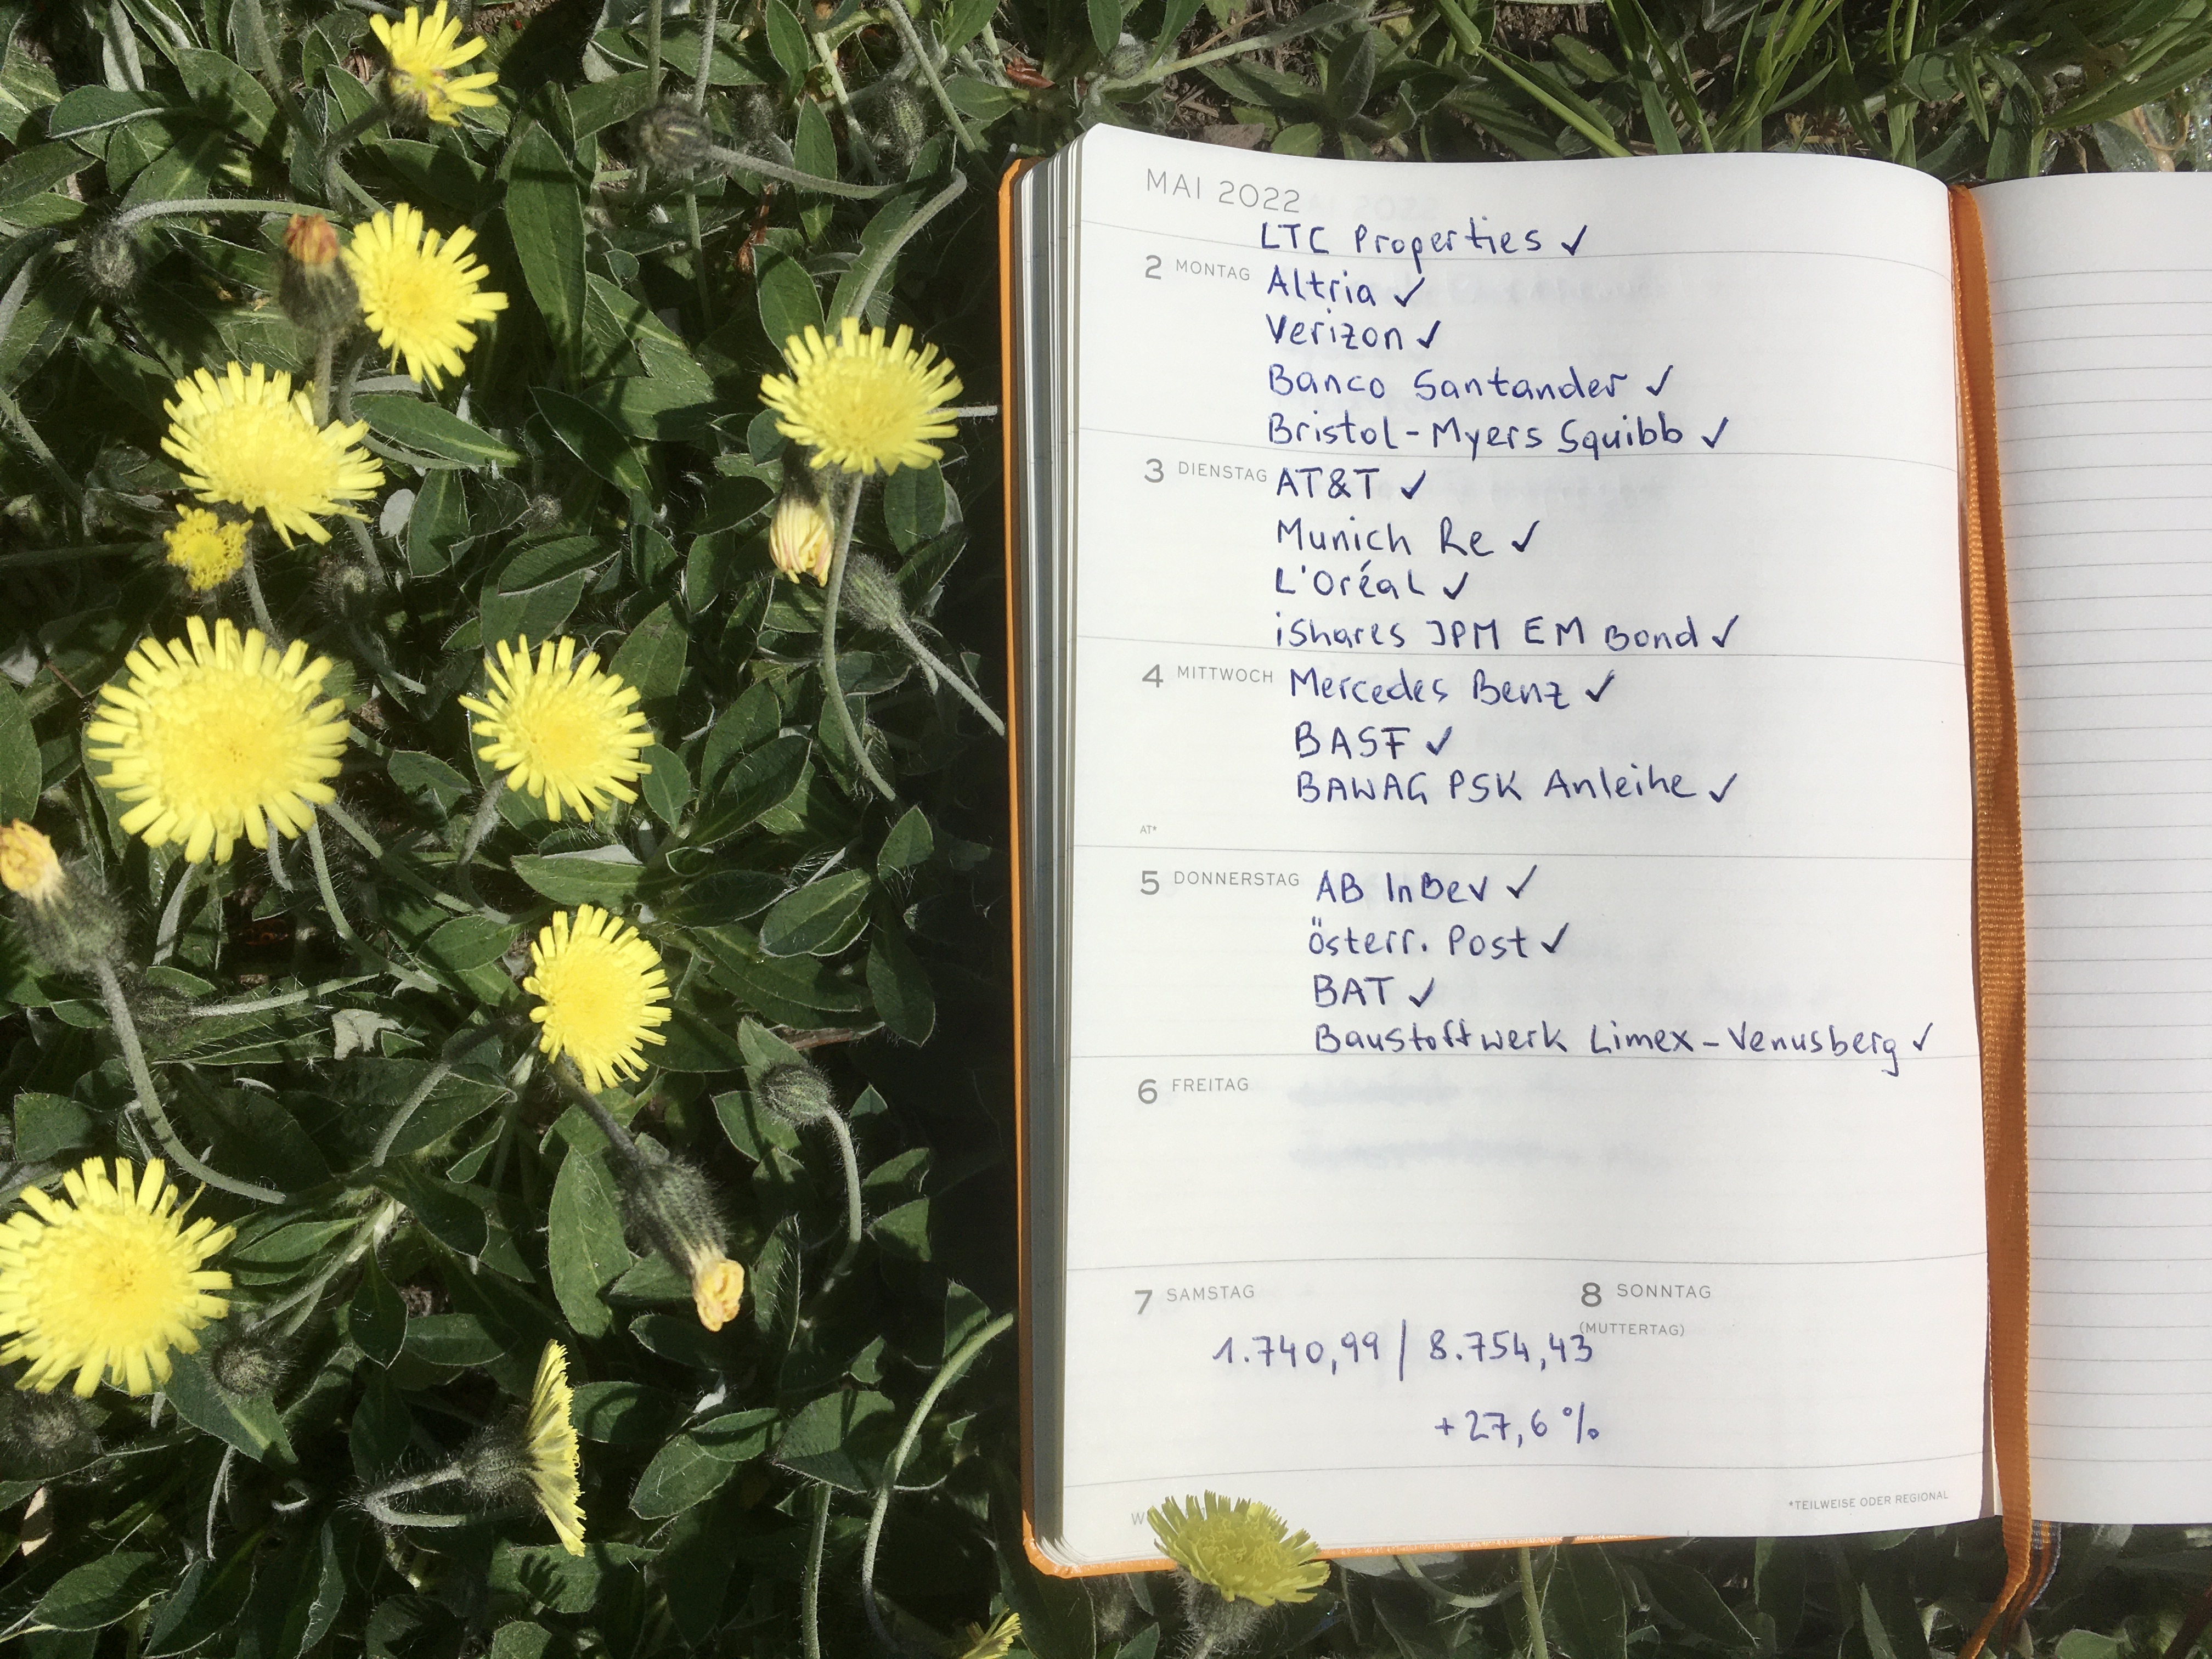 MAI 2022
LTC Properties ✓
2 MONTAG Altria ✓
Verizon ✓
Banco Santander ✓
Bristol-Myers Squibb ✓
3 DIENSTAG AT&T ✓
Munich Re ✓
L'Oréal ✓
iShares JPM EM Bond ✓
4 MITTWOCH Mercedes Benz ✓
BASF ✓
BAWAG PSK Anleihe ✓
AT*
5 DONNERSTAG AB InBev ✓
österr. Post ✓
BAT ✓
Baustoffwerk Limex-Venusberg ✓
6 FREITAG
7 SAMSTAG 8 SONNTAG
(MUTTERTAG)
1.740,99 | 8.754,43
+27,6 %
*TEILWEISE ODER REGIONAL